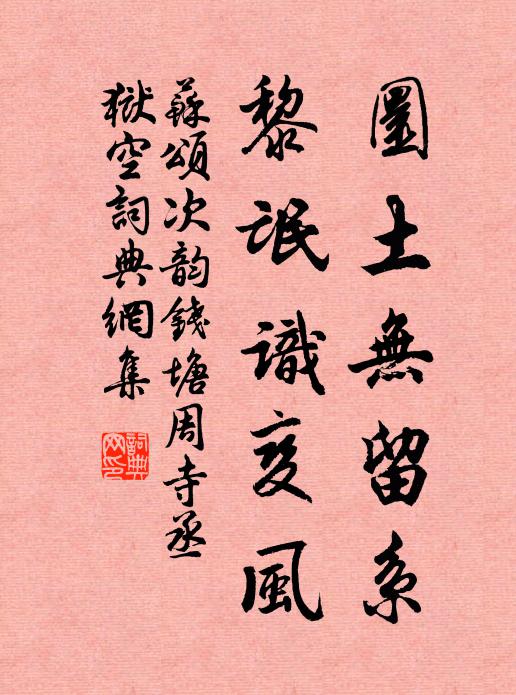 圜土無留系
黎氓識变風
蘇頌次韵錢塘周寺丞
獄空詞典網集
詞典网印